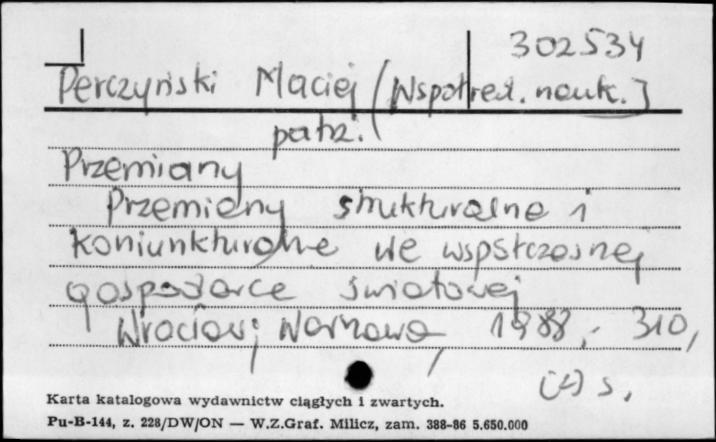 302534
Perczyński Maciej (Współred. nauk.]
patrz.
Przemiany
Przemiany strukturalne i
koniunkturalne we współczesnej
gospodarce światowej
Wrocław; Warszawa 1988, - 310,
(2) s.
Karta katalogowa wydawnictw ciągłych i zwartych.
Pu-B-144, z. 228/DW/ON — W.Z.Graf. Milicz, zam. 388-86 5.650.000